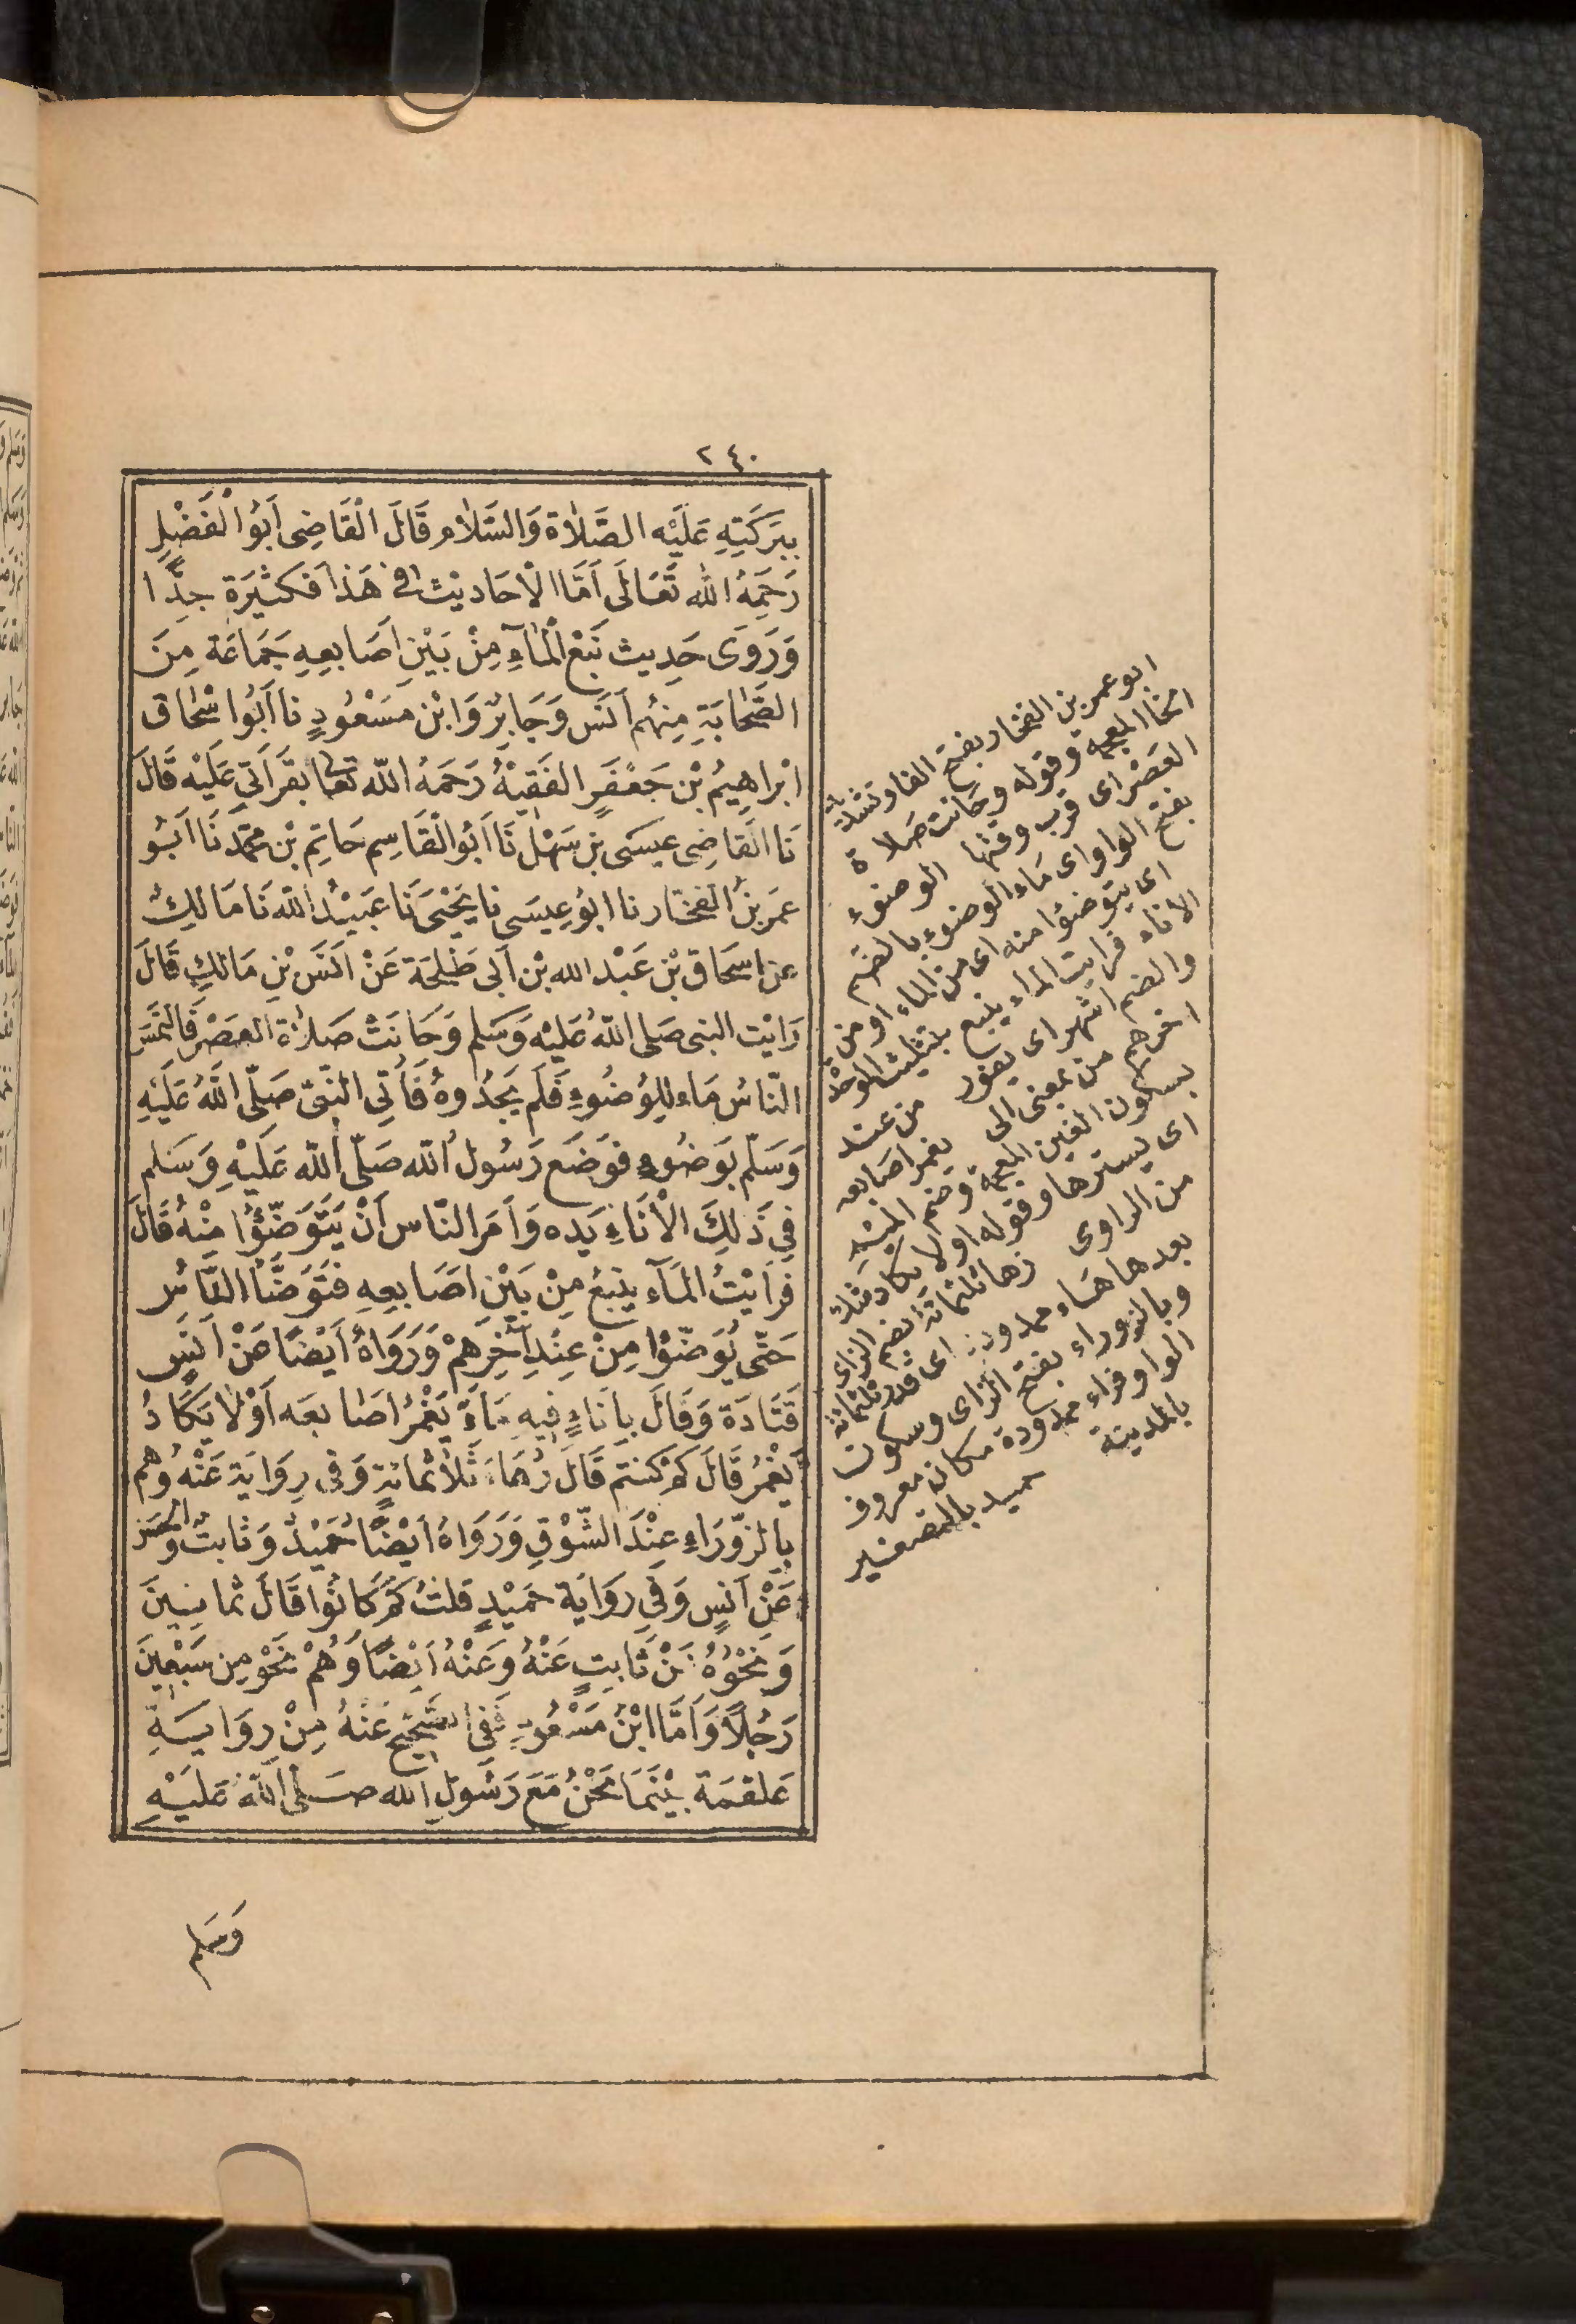 ٢٤٠
بِبَرَكَتِهِ عَلَيْهِ الصَّلَاة وَالسَّلَام قَالَ الْقَاضِى اَبُو الْفَضْلِ
رَحِمَهُ اللّٰه تَعَالَى اَمَّا الْاَحَادِيْث فى هَذَا فَكَثِيْرَة جِدًّا
وَرَوَى حَدِيث نَبْع الْمَآءِ مِنْ بَيْنِ اَصَابِعِهِ جَمَاعَة مِنَ
الصَّحَابَةِ مِنْهُم اَنَس وَجَابِرٌ وَابْن مَسْعُودٍ نا اَبُوا سْحَاق
ابْراهِيمُ بْن جَعْفَرٍ الفَقِيْهُ رَحِمَهُ اللّه تعا بقَرَاَتى عَلَيْه قَالَ
نَا القَاضِى عِيسَى بن سَهْل نَا اَبُوالْقَاسِم حَاتِم بْن مُحَمَّد نَا اَبُو
عمَر بنُ الفَخَّار نا ابُو عِيسَى نا يَحْيَى نَا عُبَيْدُ اللّه نَا مَالِكٌ
عن اِسحَاق بْن عَبْد الله بْن اَبى طَلْحَة عَنْ اَنَسِ بْنِ مَالكٍ قَالَ
رَاَيْت النبى صَلى اللّهُ عَلَيْه وَسَلم وَحَانَتْ صَلاَة العَصْر فَالتَمَسَ
النّاسُ مَاء لِلوُضُوءِ فَلَم يَجِدُوهُ فَاُتِى النَّبىّ صَلّى اللّهُ عَلَيْهِ
وَسَلّم بِوَضُوءٍ فَوَضَع رَسُول اللّه صَلّى اللّه عَلَيْهِ وَسَلم
فِي ذَلِكَ الْاَنَاءِ يَده وَاَمَر النّاس اَنْ يَتَوَضَّؤُا مِنْهُ قَالَ
فَراَيْتُ المَآء يَنبعُ مِنْ بَيْن اَصَابِعِهِ فَتَوَضَّاَ النَّاسُ
حَتّى تَوَضّؤُا مِنْ عِنْدِ آخِرِهِمْ وَرَوَاهُ اَيْضًا عَنْ اَنَسٍ
قَتَادَة وَقَالَ بِاِنَاءٍ فِيهِ مَاءٌ يَغْمُرُ اَصَابعَه اَوْ لَا يَكَادُ
يَغْمُر قَالَ كَمْ كُنتم قَالَ زُهَاءَ ثَلَاثمِائَةٍ وَفى رِوَايَة عَنْه وَهم
بِالزّوْرَاءِ عِنْدَ السّوْقِ وَرَوَاهُ اَيْضًا حُمَيْدٌ وَثَابتٌ والحسَن
عَنْ اَنَسٍ وَفِي رِوَايَة حُمَيْدٍ قلتُ كَمْ كَانُوا قَالَ ثمَانِينَ
وَنَحْوُهُ عَنْ ثَابِتٍ عَنْهُ وَعَنْهُ اَيْضًا وَهُمْ نَحْو مِن سَبْعِينَ
رَجُلًا وَاَمَّا ابْنُ مَسْعُودٍ فَفِى الصَّحِيْحِ عَنْهُ مِنْ رِوَايَةِ
عَلقمَة بَيْنَمَا نَحْنُ مَعَ رَسُولِ الله صَلّى اللّهُ عَلَيْهِ
وَسَلم
ابو عمر بن الفخار بفتح الفا وتشديد
الخا المعجمه وقوله وحَانت صَلاة
العَصْر اى قرب وقتها الوضوء
بفتح الواو اى مَاء الوضوء بالضم
اى يتوضؤا منه اى من الماء او من
الاناء فرايت الماء ينبع بتثليث الموحدة
والضم اشهر اى يفور من عند
اخرهم من بمعنى الى يغمر اصَابعه
بسكون الغين المعجمة وضم الميم
اى يسترها وقوله اولا يكاد شك
من الراوى زهاء ثلثمائة بضم الزاى
بعدها هَاء ممدودة اى قدر ثلثمائة
وبالزوراء بفتح الزاى وسكون
الواو فراء ممدودة مكان معروف
بالمدينة حميد بالتصغير